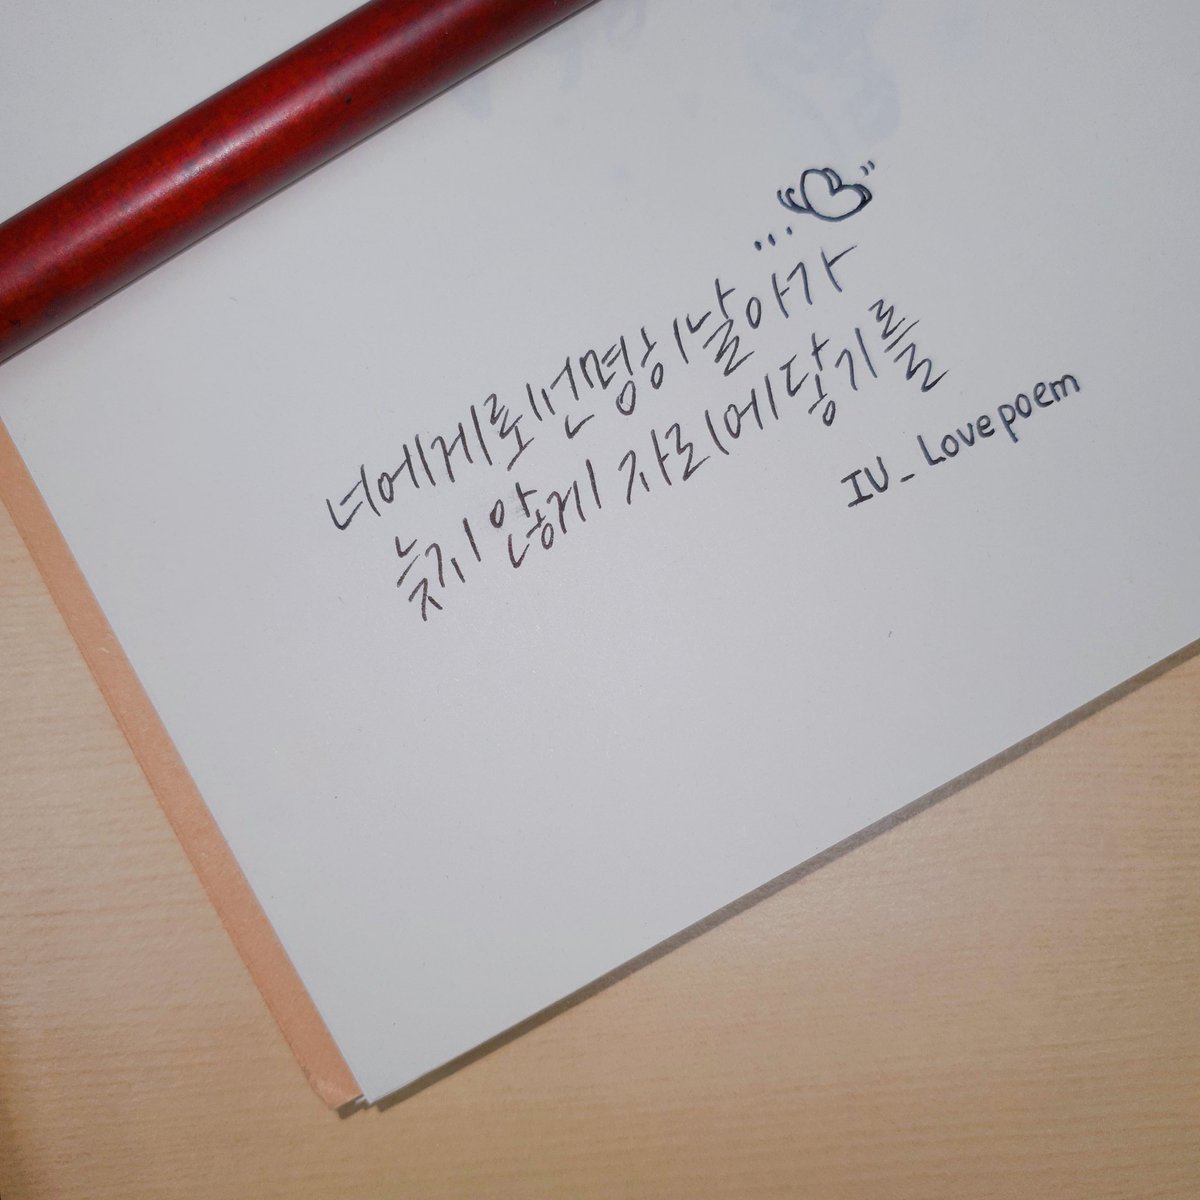 너에게로 선명히 날아가
늦지 않게 자리에 닿기를
IU_Love poem